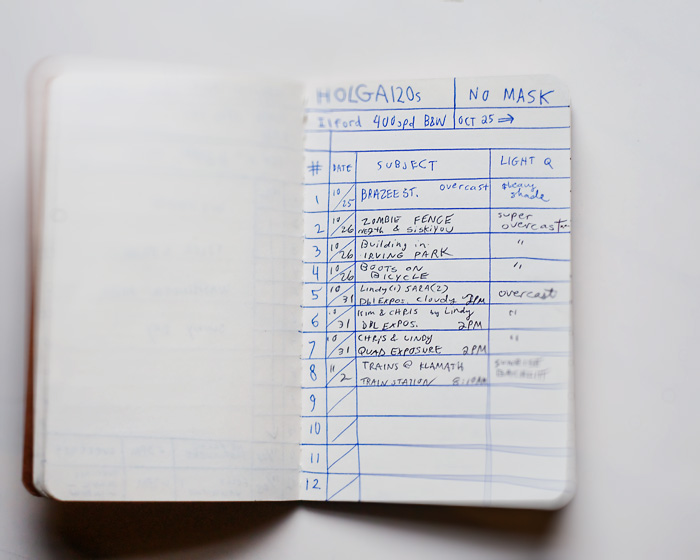 HOLGA120s NO MASK
Ilford 400spd B&W OCT 25 →
# DATE SUBJECT LIGHT Q
1 10/25 BRAZEE ST. overcast heavy shade
2 10/26 ZOMBIE FENCE & SISKIYOU super overcast
3 10/26 Building in IRVING PARK "
4 10/26 BOOTS ON BICYCLE "
5 10/31 Lindy(1) SARA(2) DBL EXPOS. cloudy 2PM overcast
6 10/31 KIM & CHRIS by Lindy DBL EXPOS. 2PM "
7 10/31 CHRIS & LINDY QUAD EXPOSURE 2PM "
8 11/2 TRAINS @ KLAMATH TRAIN STATION
9
10
11
12